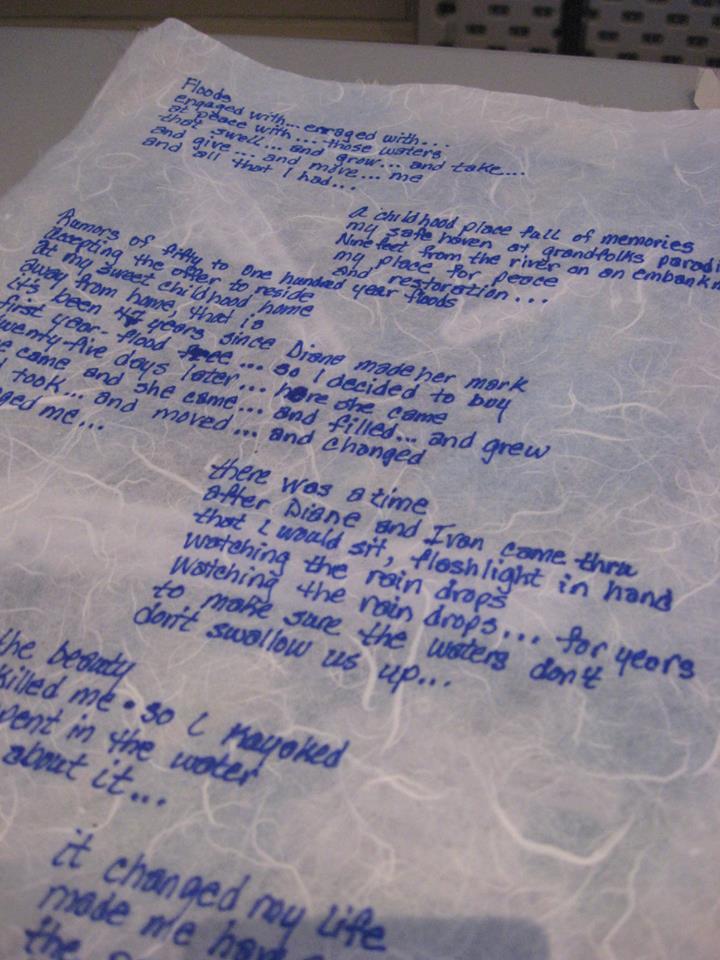 Floods
engaged with... enraged with...
at peace with... those waters
that swell... and grow... and take...
and give... and move... me
and all that I had...
A childhood place full of memories
my safe haven at grandfolks
Nine feet from the river on an
my place for peace
and restoration...
Rumors of fifty to one hundred year floods
accepting the offer to reside
at my sweet childhood home
away from home, that is
it's been years since Diane made her mark
first year- flood free... so I decided to buy
twenty-five days later... here she came
came and she came... and filled... and grew
took... and moved... and changed
me...
there was a time
after Diane and Ivan came thru
that I would sit, flashlight in hand
watching the rain drops
watching the rain drops... for years
to make sure the waters don't
don't swallow us up...
the beauty
killed me. so I kayaked
in the water
about it...
it changed my life
made me
the